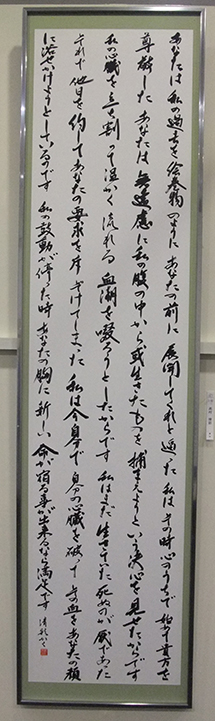 あなたは 私の過去を絵巻物のように あなたの前に 展開してくれと逼った 私はその時心のうちで 始めて貴方を
尊敬した あなたは 無遠慮に私の腹の中から或生きたものを 捕まえようという決心を見せたからです
私の心臓を立ち割って温かく流れる 血潮を啜ろうとしたからです 私はまだ 生きていた 死ぬのが厭であった
それで 他日を約してあなたの要求を斥けてしまった 私は今自分で自分の心臓を破って 其血をあなたの顔
に浴せかけようとしているのです 私の鼓動が停った時 あなたの胸に新しい命が宿る事が出来るなら満足です